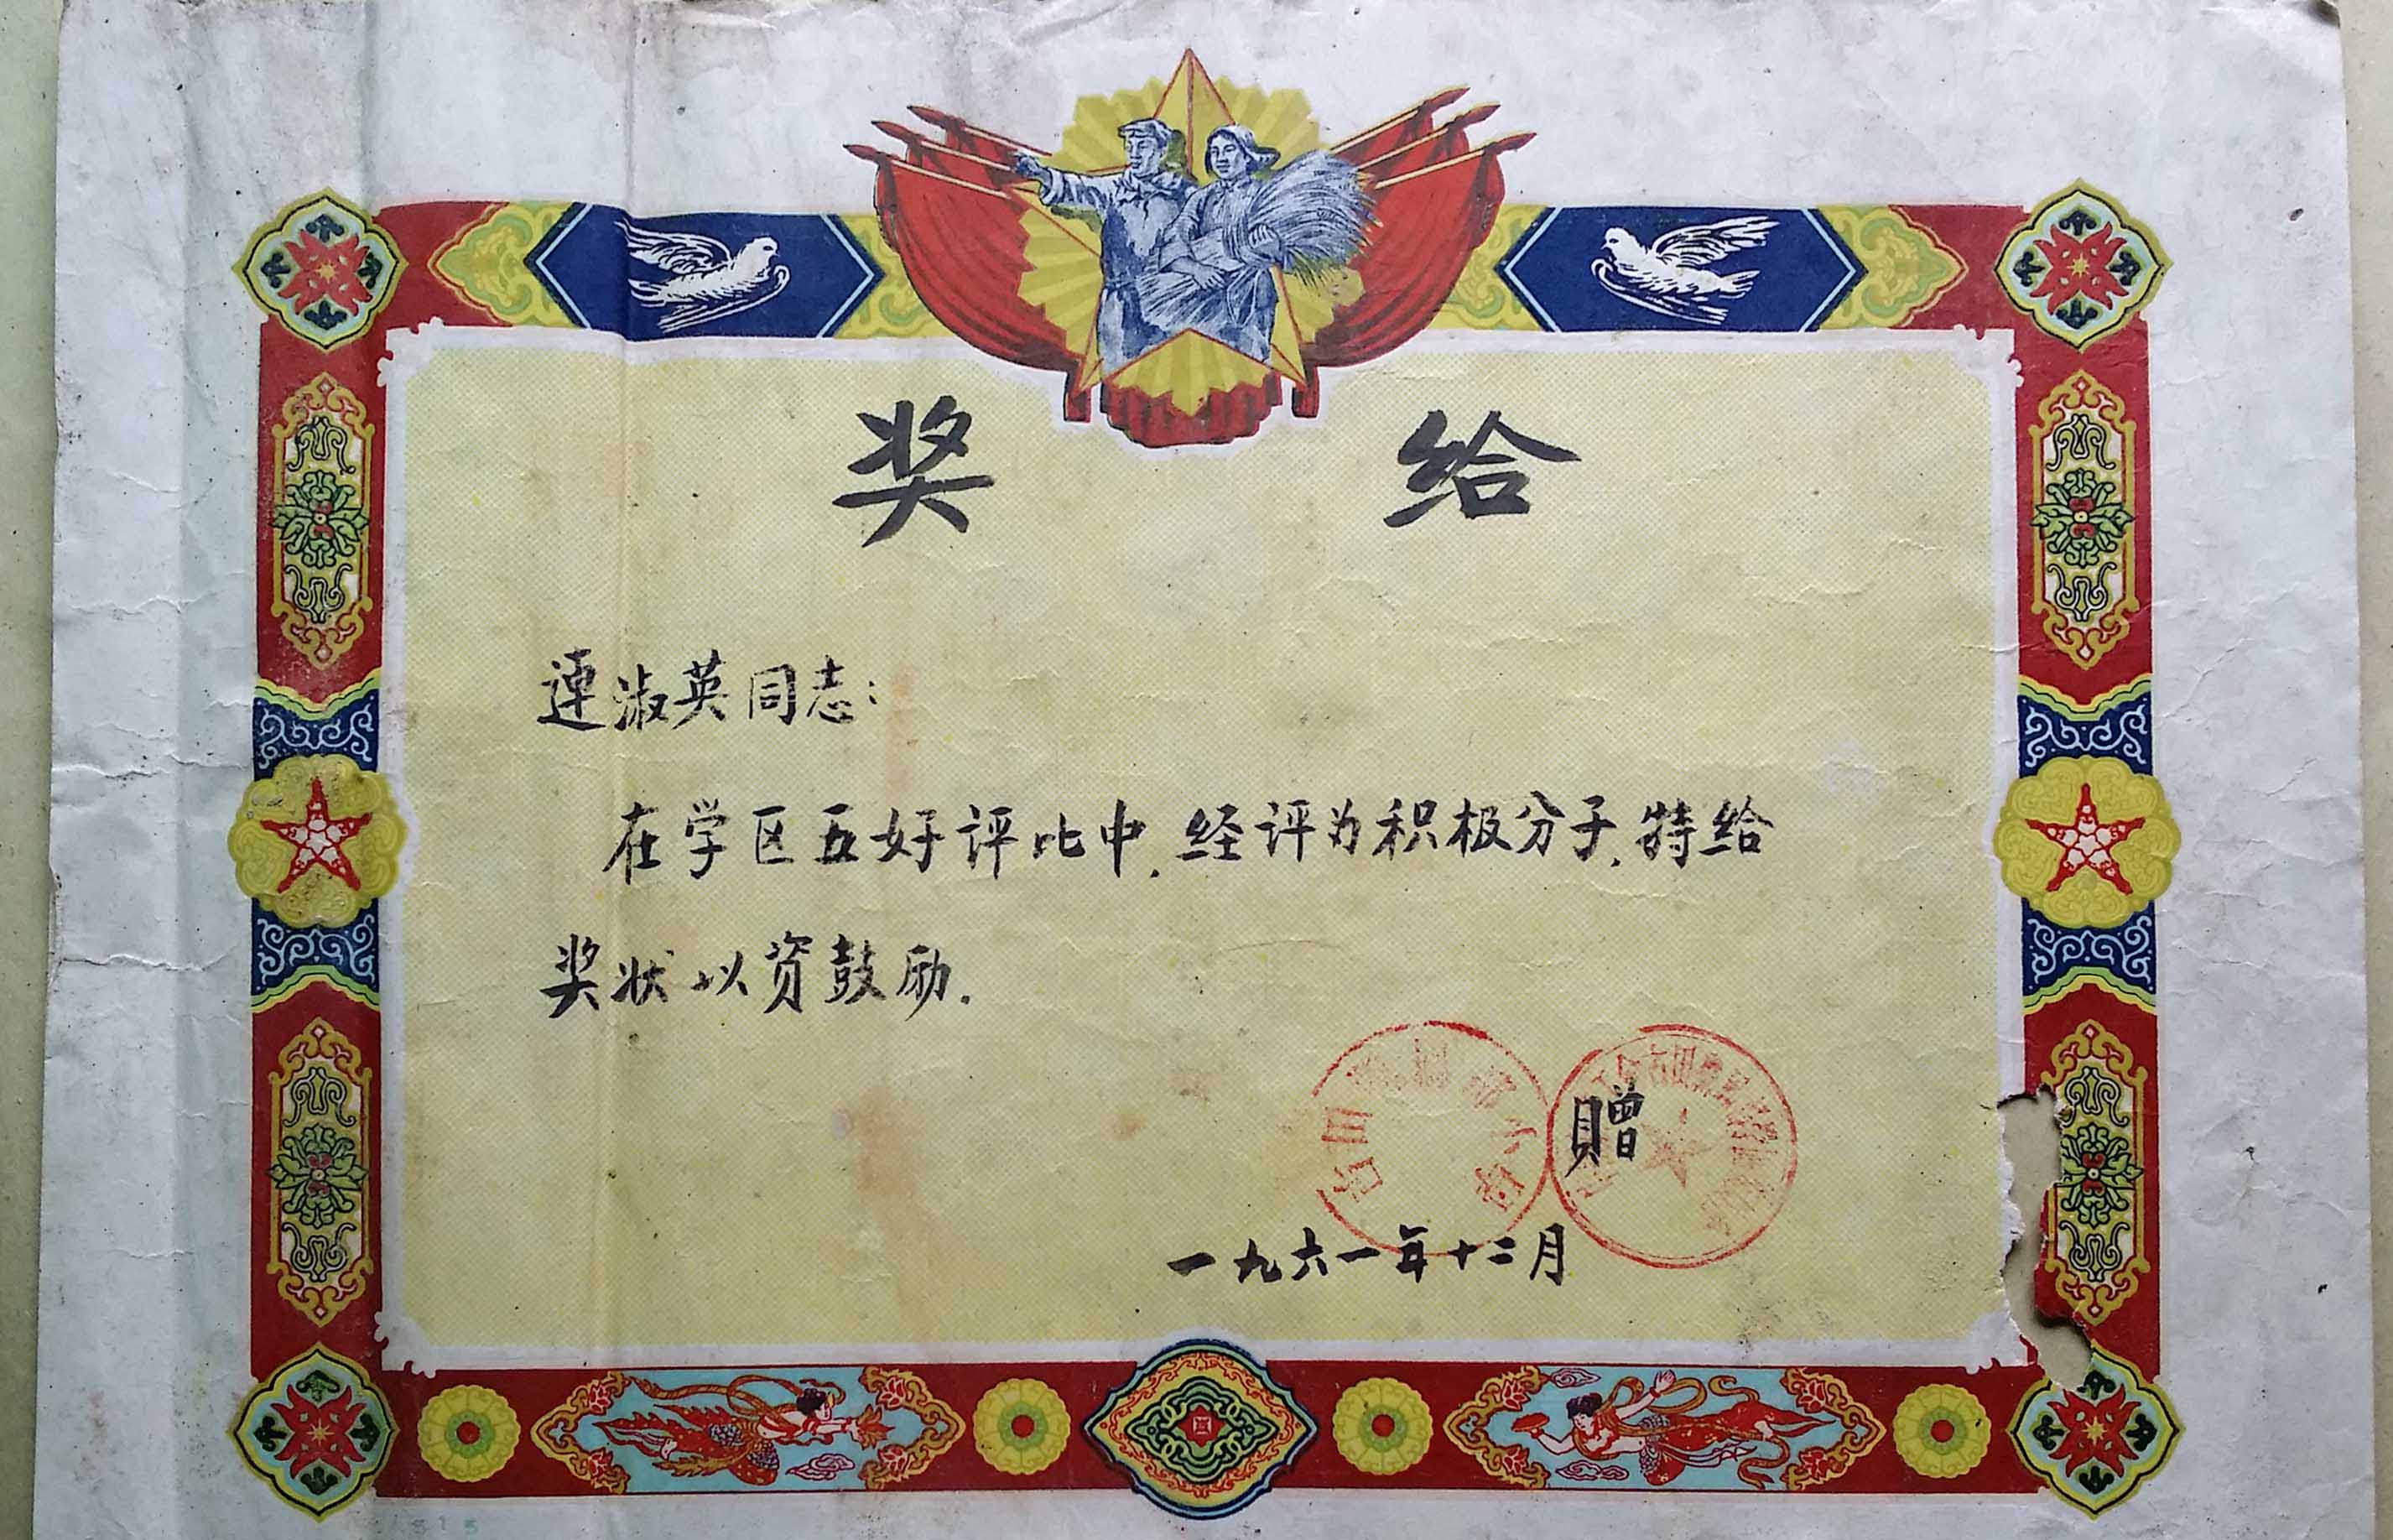 奖给
連淑英同志：
在学区五好评比中.经评为积极分子.特给
奖状以资鼓励.
贈
一九六一年十二月